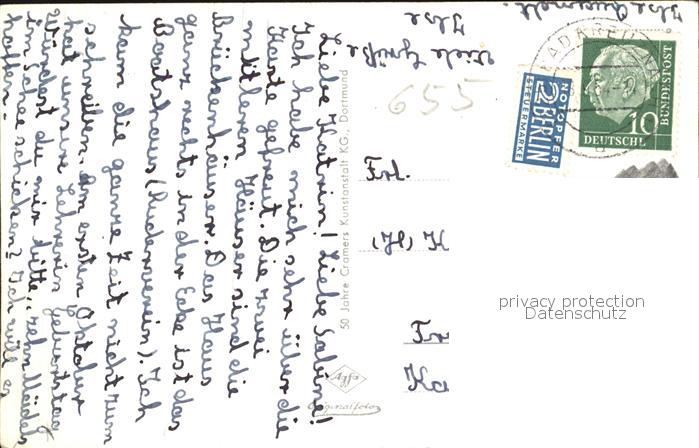 Liebe Katrin! Liebe Sabine!
Ich habe mich sehr über die
Karte gefreut. Die zwei
mittleren Häuser sind die
Brückenhäuser. Das Haus
ganz rechts in der Ecke ist das
Bootshaus (Ruderverein). Ich
kann die ganze Zeit nicht zum
schreiben. Am ersten Oktober
hat unsere Lehrerin Geburtstag
Würdest du mir bitte, "zehn Mädel
im Schnee schicken? Ich will es
hoffen.
Viele Grüße
Ilse
Ilse
655
50 Jahre Cramers Kunstanstalt KG., Dortmund
Agfa
Originalfoto
NOTOPFER
2 BERLIN
STEUERMARKE
BAD KREUZNA
10
DEUTSCHE
BUNDESPOST
Frl.
privacy protection
Datenschutz